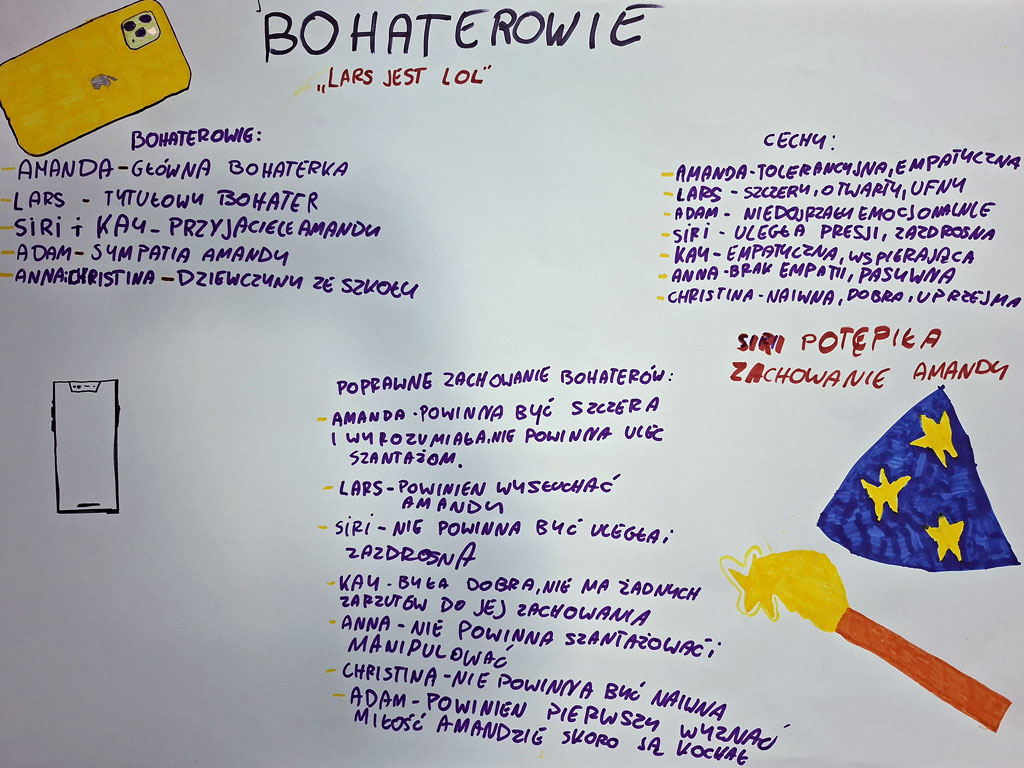 BOHATEROWIE
„LARS JEST LOL"
BOHATEROWIE:
- AMANDA - GŁÓWNA BOHATERKA
- LARS - TYTUŁOWY BOHATER
- SIRI i KAY - PRZYJACIELE AMANDY
- ADAM - SYMPATIA AMANDY
- ANNA i CHRISTINA - DZIEWCZYNY ZE SZKOŁY
CECHY:
- AMANDA - TOLERANCYJNA, EMPATYCZNA
- LARS - SZCZERY, OTWARTY, UFNY
- ADAM - NIEDOJRZAŁY EMOCJONALNIE
- SIRI - ULEGŁA PRESJI, ZAZDROSNA
- KAY - EMPATYCZNA, WSPIERAJĄCA
- ANNA - BRAK EMPATII, PASYWNA
- CHRISTINA - NAIWNA, DOBRA, UPRZEJMA
SIRI POTĘPIŁA
ZACHOWANIE AMANDY
POPRAWNE ZACHOWANIE BOHATERÓW:
- AMANDA - POWINNA BYĆ SZCZERA
I WYROZUMIAŁA. NIE POWINNA ULEC
SZANTAŻOM.
- LARS - POWINIEN WYSŁUCHAĆ
AMANDY
- SIRI - NIE POWINNA BYĆ ULEGŁA i
ZAZDROSNA
- KAY - BYŁA DOBRA, NIE MA ŻADNYCH
ZARZUTÓW DO JEJ ZACHOWANIA
- ANNA - NIE POWINNA SZANTAŻOWAĆ i
MANIPULOWAĆ
- CHRISTINA - NIE POWINNA BYĆ NAIWNA
- ADAM - POWINIEN PIERWSZY WYZNAĆ
MIŁOŚĆ AMANDZIE SKORO JĄ KOCHAŁ